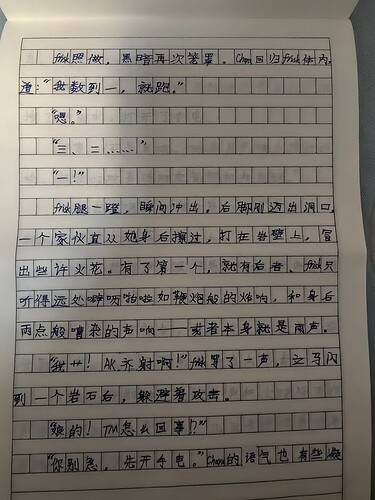 frisk照做，黑暗再次笼罩。Chara回归frisk体内，
道：“我数到一，就跑。”
“嗯。”
“三、二……”
“一！”
frisk腿一蹬，瞬间冲出。后脚刚迈出洞口，
一个家伙直从她身后擦过，打在岩壁上，冒
出些许火花。有了第一个，就有后者、frisk只
听得远处噼呖啪啦如鞭炮般的炸响，和身后
雨点般嘈杂的声响——或者本身就是雨声。
“我艹！AK齐射啊！”frisk骂了一声，立马闪
到一个岩石后，躲避着攻击。
的！TM怎么回事？”
“你别急，先开手电。”Chara的语气也有些